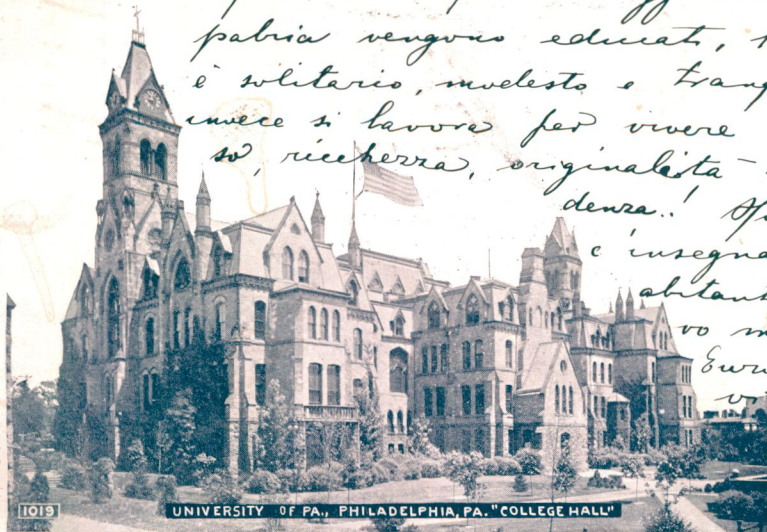 patria vengono educati,
è solitario, modesto e
invece si lavora per vivere
so, ricchezza, originalità -
denza..!
e insegna
abitan
vo
1019
UNIVERSITY OF PA., PHILADELPHIA, PA. "COLLEGE HALL"